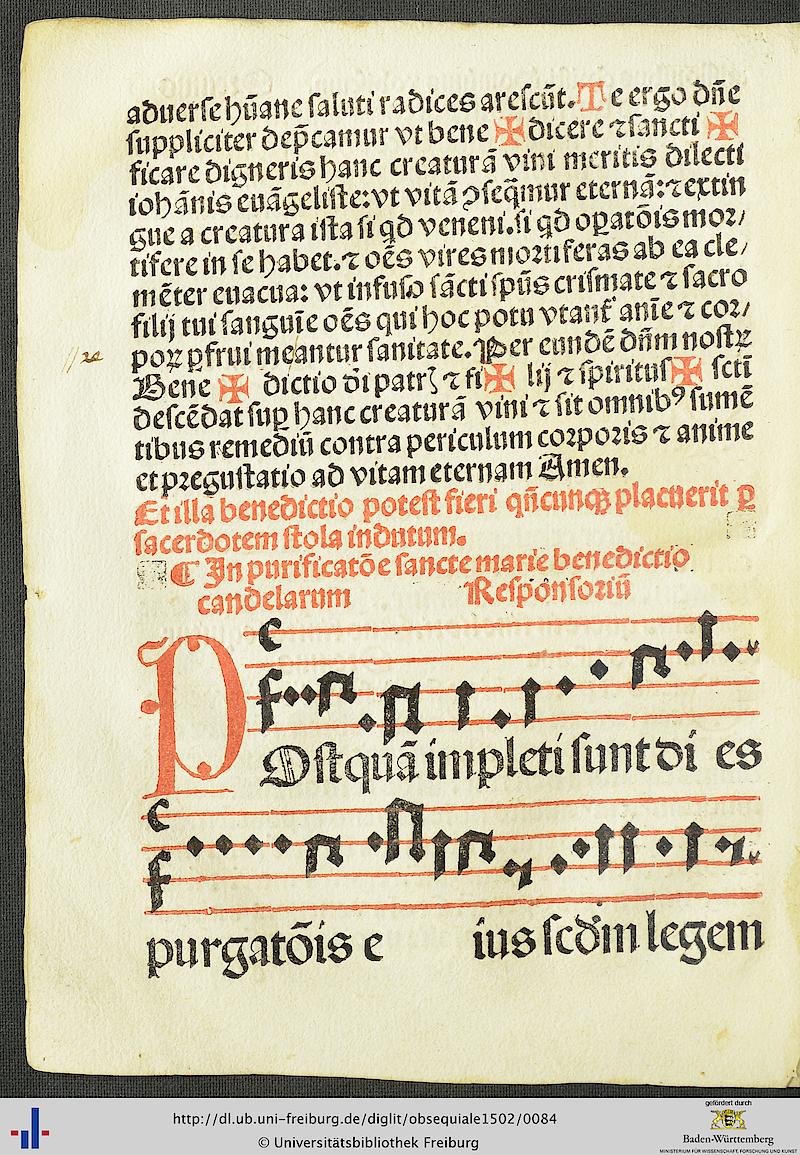 aduerse hūane saluti radices arescūt. Te ergo dn̄e
suppliciter dep̄camur vt bene ✠ dicere ⁊ sancti ✠
ficare digneris hanc creaturā vini meritis dilecti
iohānis euāgeliste: vt vitā ꝯseq̄mur eternā: ⁊ extin
gue a creatura ista si qd veneni. si qd oꝑatōis mor/
tifere in se habet. ⁊ oēs vires mortiferas ab ea cle/
mēter euacua: vt infuso sācti spūs crismate ⁊ sacro
filij tui sanguīe oēs qui hoc potu vtant̄ anīe ⁊ cor/
poꝝ ꝑfrui meantur sanitate. Per eundē dn̄m nostꝝ
Bene ✠ dictio di patrꝭ ⁊ fi ✠ lij ⁊ spiritus ✠ scti
descēdat suꝑ hanc creaturā vini ⁊ sit omnibꝰ sumē
tibus remediū contra periculum corporis ⁊ anime
et pregustatio ad vitam eternam Amen.
Et illa benedictio potest fieri qn̄cunqꝫ placuerit ꝑ
sacerdotem stola indutum.
¶ In purificatōe sancte marie benedictio
candelarum Responsoriū
POstquā impleti sunt di es
purgatōis e ius scdm legem
http://dl.ub.uni-freiburg.de/diglit/obsequiale1502/0084
© Universitätsbibliothek Freiburg
gefördert durch
Baden-Württemberg
MINISTERIUM FÜR WISSENSCHAFT, FORSCHUNG UND KUNST